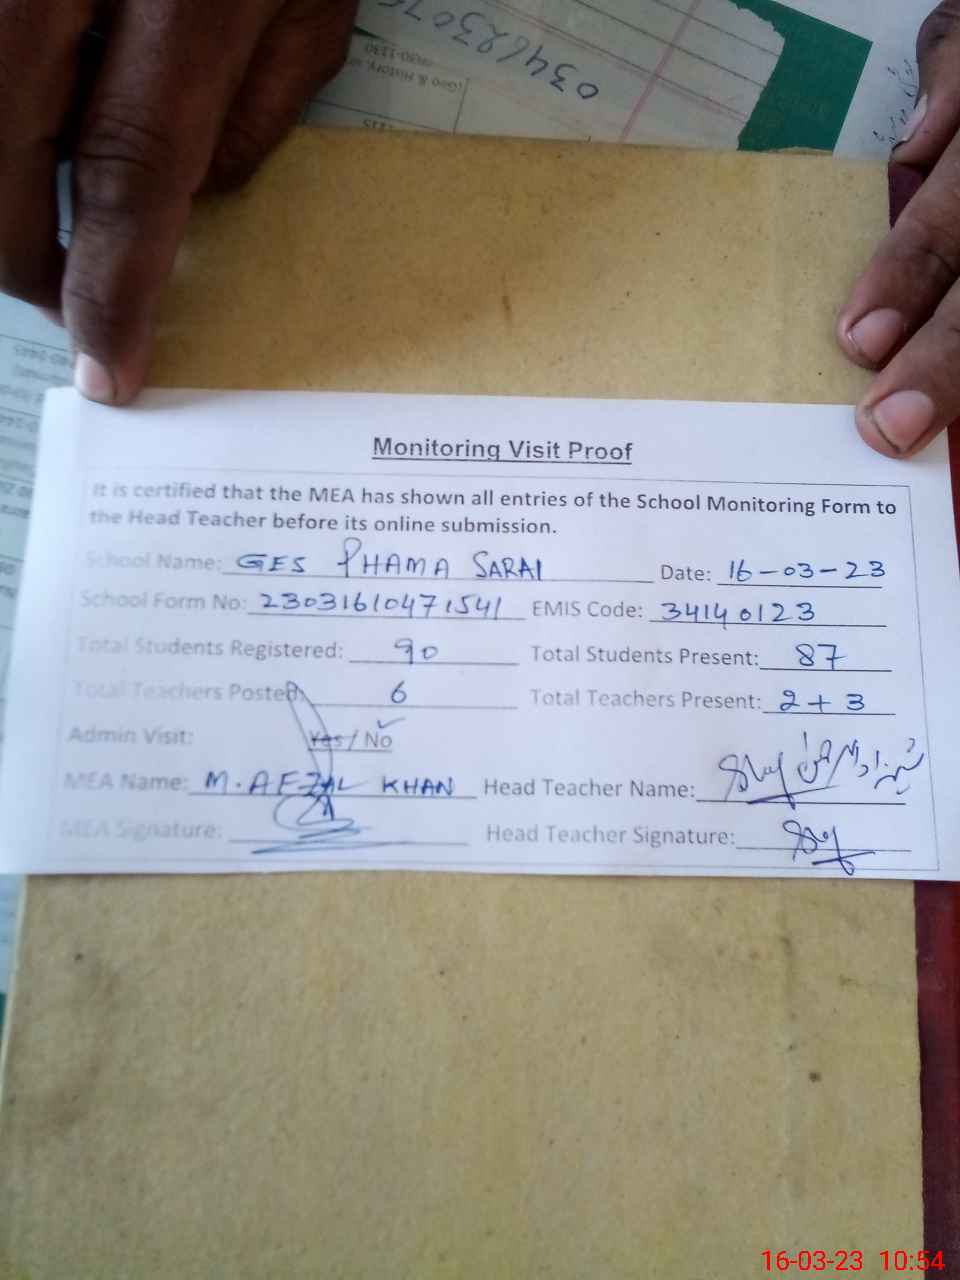 03468230
(Geo & History,
0930-1130
Monitoring Visit Proof
It is certified that the MEA has shown all entries of the School Monitoring Form to
the Head Teacher before its online submission.
School Name: GES PHAMA SARAI Date: 16-03-23
School Form No: 23031610471541 EMIS Code: 34140123
Total Students Registered: 90 Total Students Present: 87
Total Teachers Posted: 6 Total Teachers Present: 2 + 3
Admin Visit: Yes / No
MEA Name: M. AFZAL KHAN Head Teacher Name:
MEA Signature: Head Teacher Signature:
16-03-23 10:54